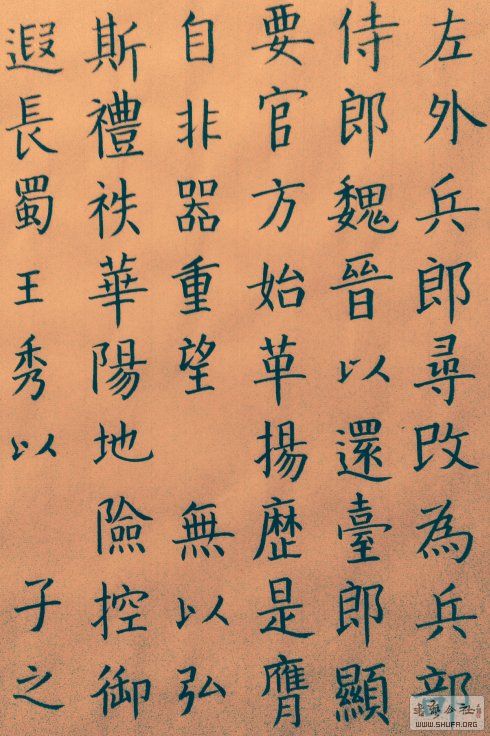 左外兵郎尋改為兵部
侍郎魏晉以還臺郎顯
要官方始革揚歷是膺
自非器重望無以弘
斯禮袟華陽地險控御
遐長蜀王秀以子之
WWW.SHUFA.ORG